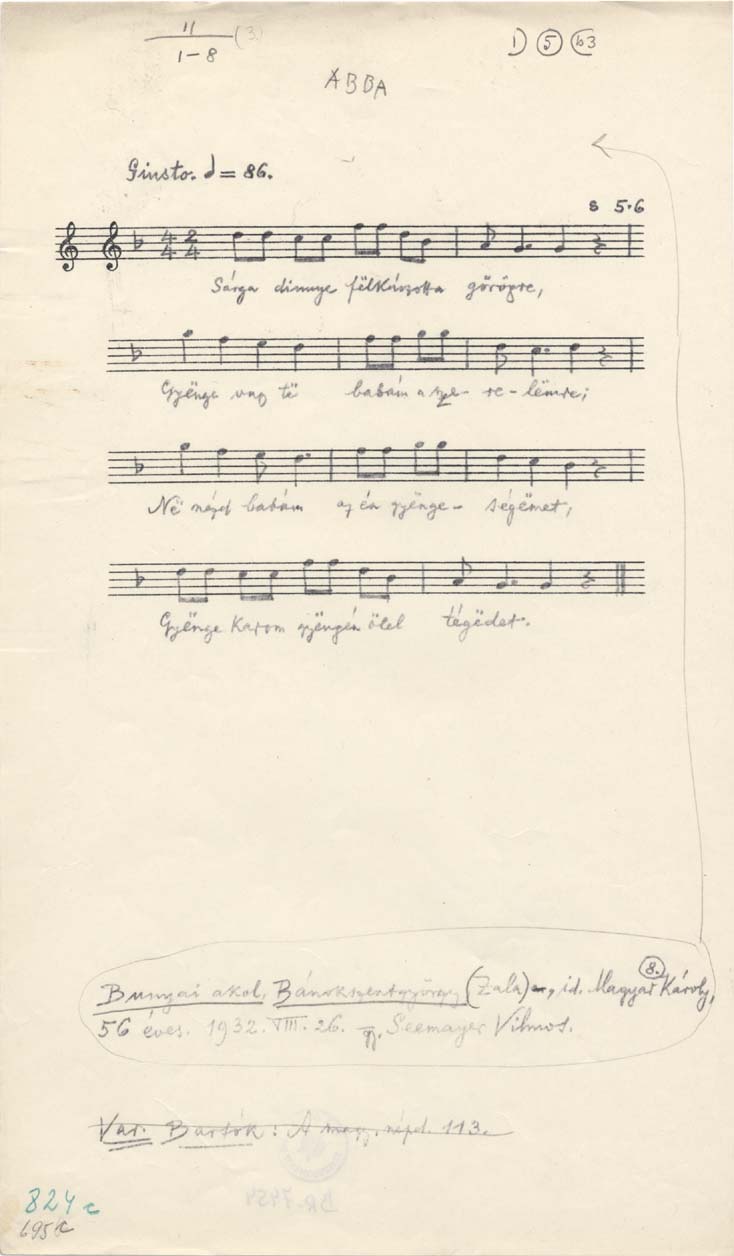 11 (3.)
1-8
1) 5 b3
ABBA
Giusto. = 86.
8 5·6
4 2
4 4
Sárga dinnye fëlkúszotta görögre,
Gyënge vagy të babám a sze- re-lëmre;
Në nézd babám az én gyënge- ségëmet,
Gyënge karom gyëngén ölel tégëdet.
8.
Bunyai akol, Bánokszentgyörgy (Zala), id. Magyar Károly,
56 éves. 1932. VIII. 26. gy. Seemayer Vilmos.
Var. Bartók: A magy. népd. 113.
824 c
695